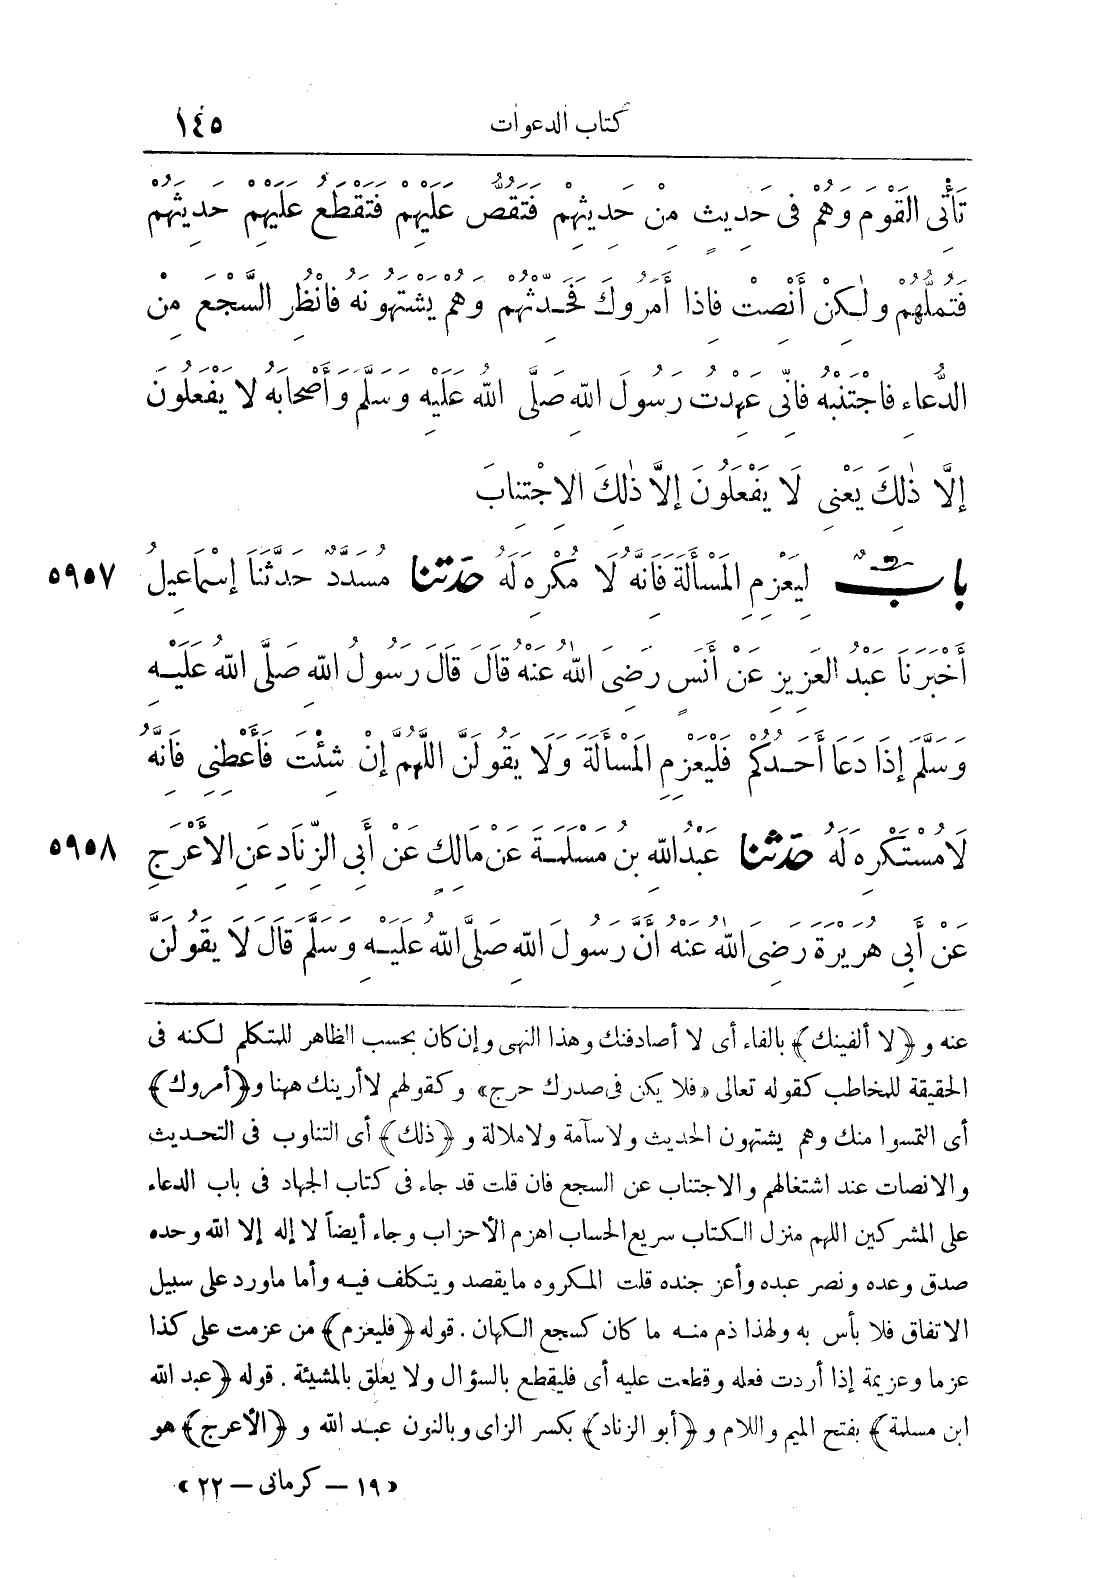 كتاب الدعوات
١٤٥
تَأْتِى القَوْمَ وَهُمْ فِى حَدِيثٍ مِنْ حَدِيثِهِمْ فَتَقُصُّ عَلَيْهِمْ فَتَقْطَعُ عَلَيْهِمْ حَدِيثَهُمْ
فَتُمِلُّهُمْ وَلٰكِنْ أَنْصِتْ فَاذَا أَمَرُوكَ فَحَدِّثْهُمْ وَهُمْ يَشْتَهُونَهُ فَانْظُرِ السَّجْعَ مِنْ
الدُّعَاءِ فَاجْتَنِبْهُ فَانِّى عَهِدْتُ رَسُولَ اللهِ صَلَّى اللهُ عَلَيْهِ وَسَلَّمَ وَأَصْحَابَهُ لَا يَفْعَلُونَ
إِلَّا ذٰلِكَ يَعْنِى لَا يَفْعَلُونَ إِلَّا ذٰلِكَ الِاجْتِنَابَ
بابٌ لِيَعْزِمِ المَسْأَلَةَ فَانَّهُ لَا مُكْرِهَ لَهُ حَدَّثَنَا مُسَدَّدٌ حَدَّثَنَا إِسْمَاعِيلُ
٥٩٥٧
أَخْبَرَنَا عَبْدُ العَزِيزِ عَنْ أَنَسٍ رَضِىَ اللهُ عَنْهُ قَالَ قَالَ رَسُولُ اللهِ صَلَّى اللهُ عَلَيْهِ
وَسَلَّمَ إِذَا دَعَا أَحَدُكُمْ فَلْيَعْزِمِ المَسْأَلَةَ وَلَا يَقُولَنَّ اللَّهُمَّ إِنْ شِئْتَ فَأَعْطِنِى فَانَّهُ
لَا مُسْتَكْرِهَ لَهُ حَدَّثَنَا عَبْدُ اللهِ بنُ مَسْلَمَةَ عَنْ مَالِكٍ عَنْ أَبِى الزِّنَادِ عَنِ الأَعْرَجِ
٥٩٥٨
عَنْ أَبِى هُرَيْرَةَ رَضِىَ اللهُ عَنْهُ أَنَّ رَسُولَ اللهِ صَلَّى اللهُ عَلَيْهِ وَسَلَّمَ قَالَ لَا يَقُولَنَّ
عنه و (لا ألفينك) بالفاء أى لا أصادفنك وهذا النهى وإن كان بحسب الظاهر للمتكلم لكنه فى
الحقيقة للمخاطب كقوله تعالى «فلا يكن فى صدرك حرج» وكقولهم لا أرينك ههنا و (أمروك)
أى التمسوا منك وهم يشتهون الحديث ولا سآمة ولا ملالة و (ذلك) أى التناوب فى التحديث
والانصات عند اشتغالهم والاجتناب عن السجع فان قلت قد جاء فى كتاب الجهاد فى باب الدعاء
على المشركين اللهم منزل الكتاب سريع الحساب اهزم الأحزاب وجاء أيضاً لا إله إلا الله وحده
صدق وعده ونصر عبده وأعز جنده قلت المكروه ما يقصد ويتكلف فيه وأما ما ورد على سبيل
الاتفاق فلا بأس به ولهذا ذم منه ما كان كسجع الكهان. قوله (فليعزم) من عزمت على كذا
عزما وعزيمة إذا أردت فعله وقطعت عليه أى فليقطع بالسؤال ولا يعلق بالمشيئة. قوله (عبد الله
ابن مسلمة) بفتح الميم واللام و (أبو الزناد) بكسر الزاى وبالنون عبد الله و (الأعرج) هو
«١٩ – كرمانى – ٢٢»